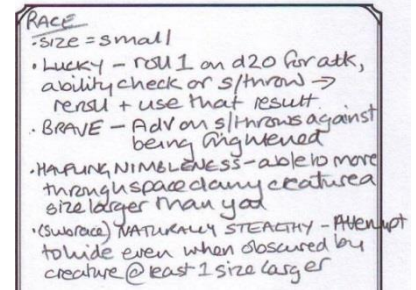 RACE
• size = small
• LUCKY – roll 1 on d20 for atk,
ability check or s/throw →
reroll + use that result.
• BRAVE – Adv on s/throws against
being frightened
• HALFLING NIMBLENESS – able to move
through space of any creature a
size larger than you
• (subrace) NATURALLY STEALTHY – Attempt
to hide even when obscured by
creature @ least 1 size larger